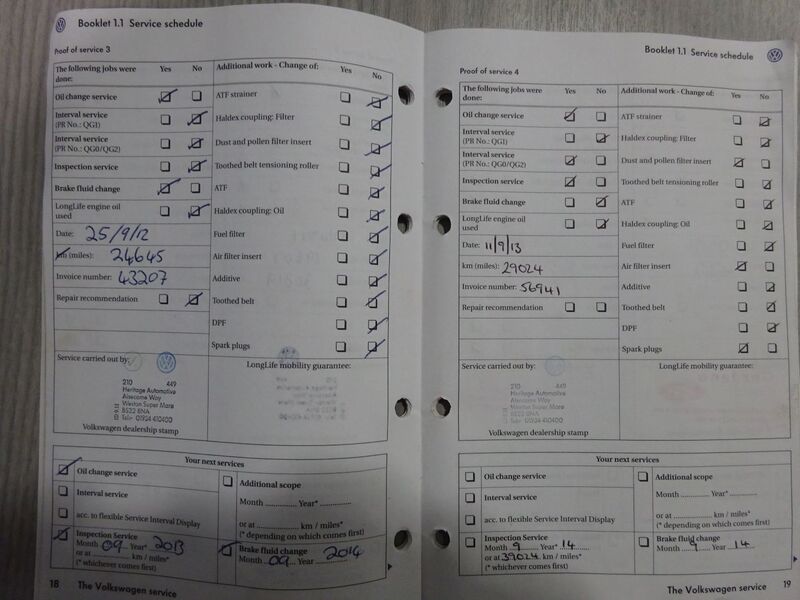 Booklet 1.1 Service schedule
Proof of service 3
The following jobs were done: Yes No
Oil change service
Interval service
(PR No.: QG1)
Interval service
(PR No.: QG0/QG2)
Inspection service
Brake fluid change
LongLife engine oil
used
Date: 25/9/12
km (miles): 24645
Invoice number: 43207
Repair recommendation
Additional work - Change of: Yes No
ATF strainer
Haldex coupling: Filter
Dust and pollen filter insert
Toothed belt tensioning roller
ATF
Haldex coupling: Oil
Fuel filter
Air filter insert
Additive
Toothed belt
DPF
Spark plugs
Service carried out by:
210 449
Heritage Automotive
Aisecome Way
Weston Super Mare
BS22 8NA
Tel: 01934 410400
Volkswagen dealership stamp
LongLife mobility guarantee:
Your next services
Oil change service
Interval service
acc. to flexible Service Interval Display
Inspection Service
Month 09 Year* 2013
or at km / miles*
(* whichever comes first)
Additional scope
Month Year*
or at km / miles*
(* depending on which comes first)
Brake fluid change
Month 09 Year 2014
18 The Volkswagen service
Booklet 1.1 Service schedule
Proof of service 4
The following jobs were done: Yes No
Oil change service
Interval service
(PR No.: QG1)
Interval service
(PR No.: QG0/QG2)
Inspection service
Brake fluid change
LongLife engine oil
used
Date: 11/9/13
km (miles): 29024
Invoice number: 56941
Repair recommendation
Additional work - Change of: Yes No
ATF strainer
Haldex coupling: Filter
Dust and pollen filter insert
Toothed belt tensioning roller
ATF
Haldex coupling: Oil
Fuel filter
Air filter insert
Additive
Toothed belt
DPF
Spark plugs
Service carried out by:
210 449
Heritage Automotive
Aisecome Way
Weston Super Mare
BS22 8NA
Tel: 01934 410400
Volkswagen dealership stamp
LongLife mobility guarantee:
Your next services
Oil change service
Interval service
acc. to flexible Service Interval Display
Inspection Service
Month 9 Year* 14
or at 39024 km / miles*
(* whichever comes first)
Additional scope
Month Year*
or at km / miles*
(* depending on which comes first)
Brake fluid change
Month 9 Year 14
The Volkswagen service 19